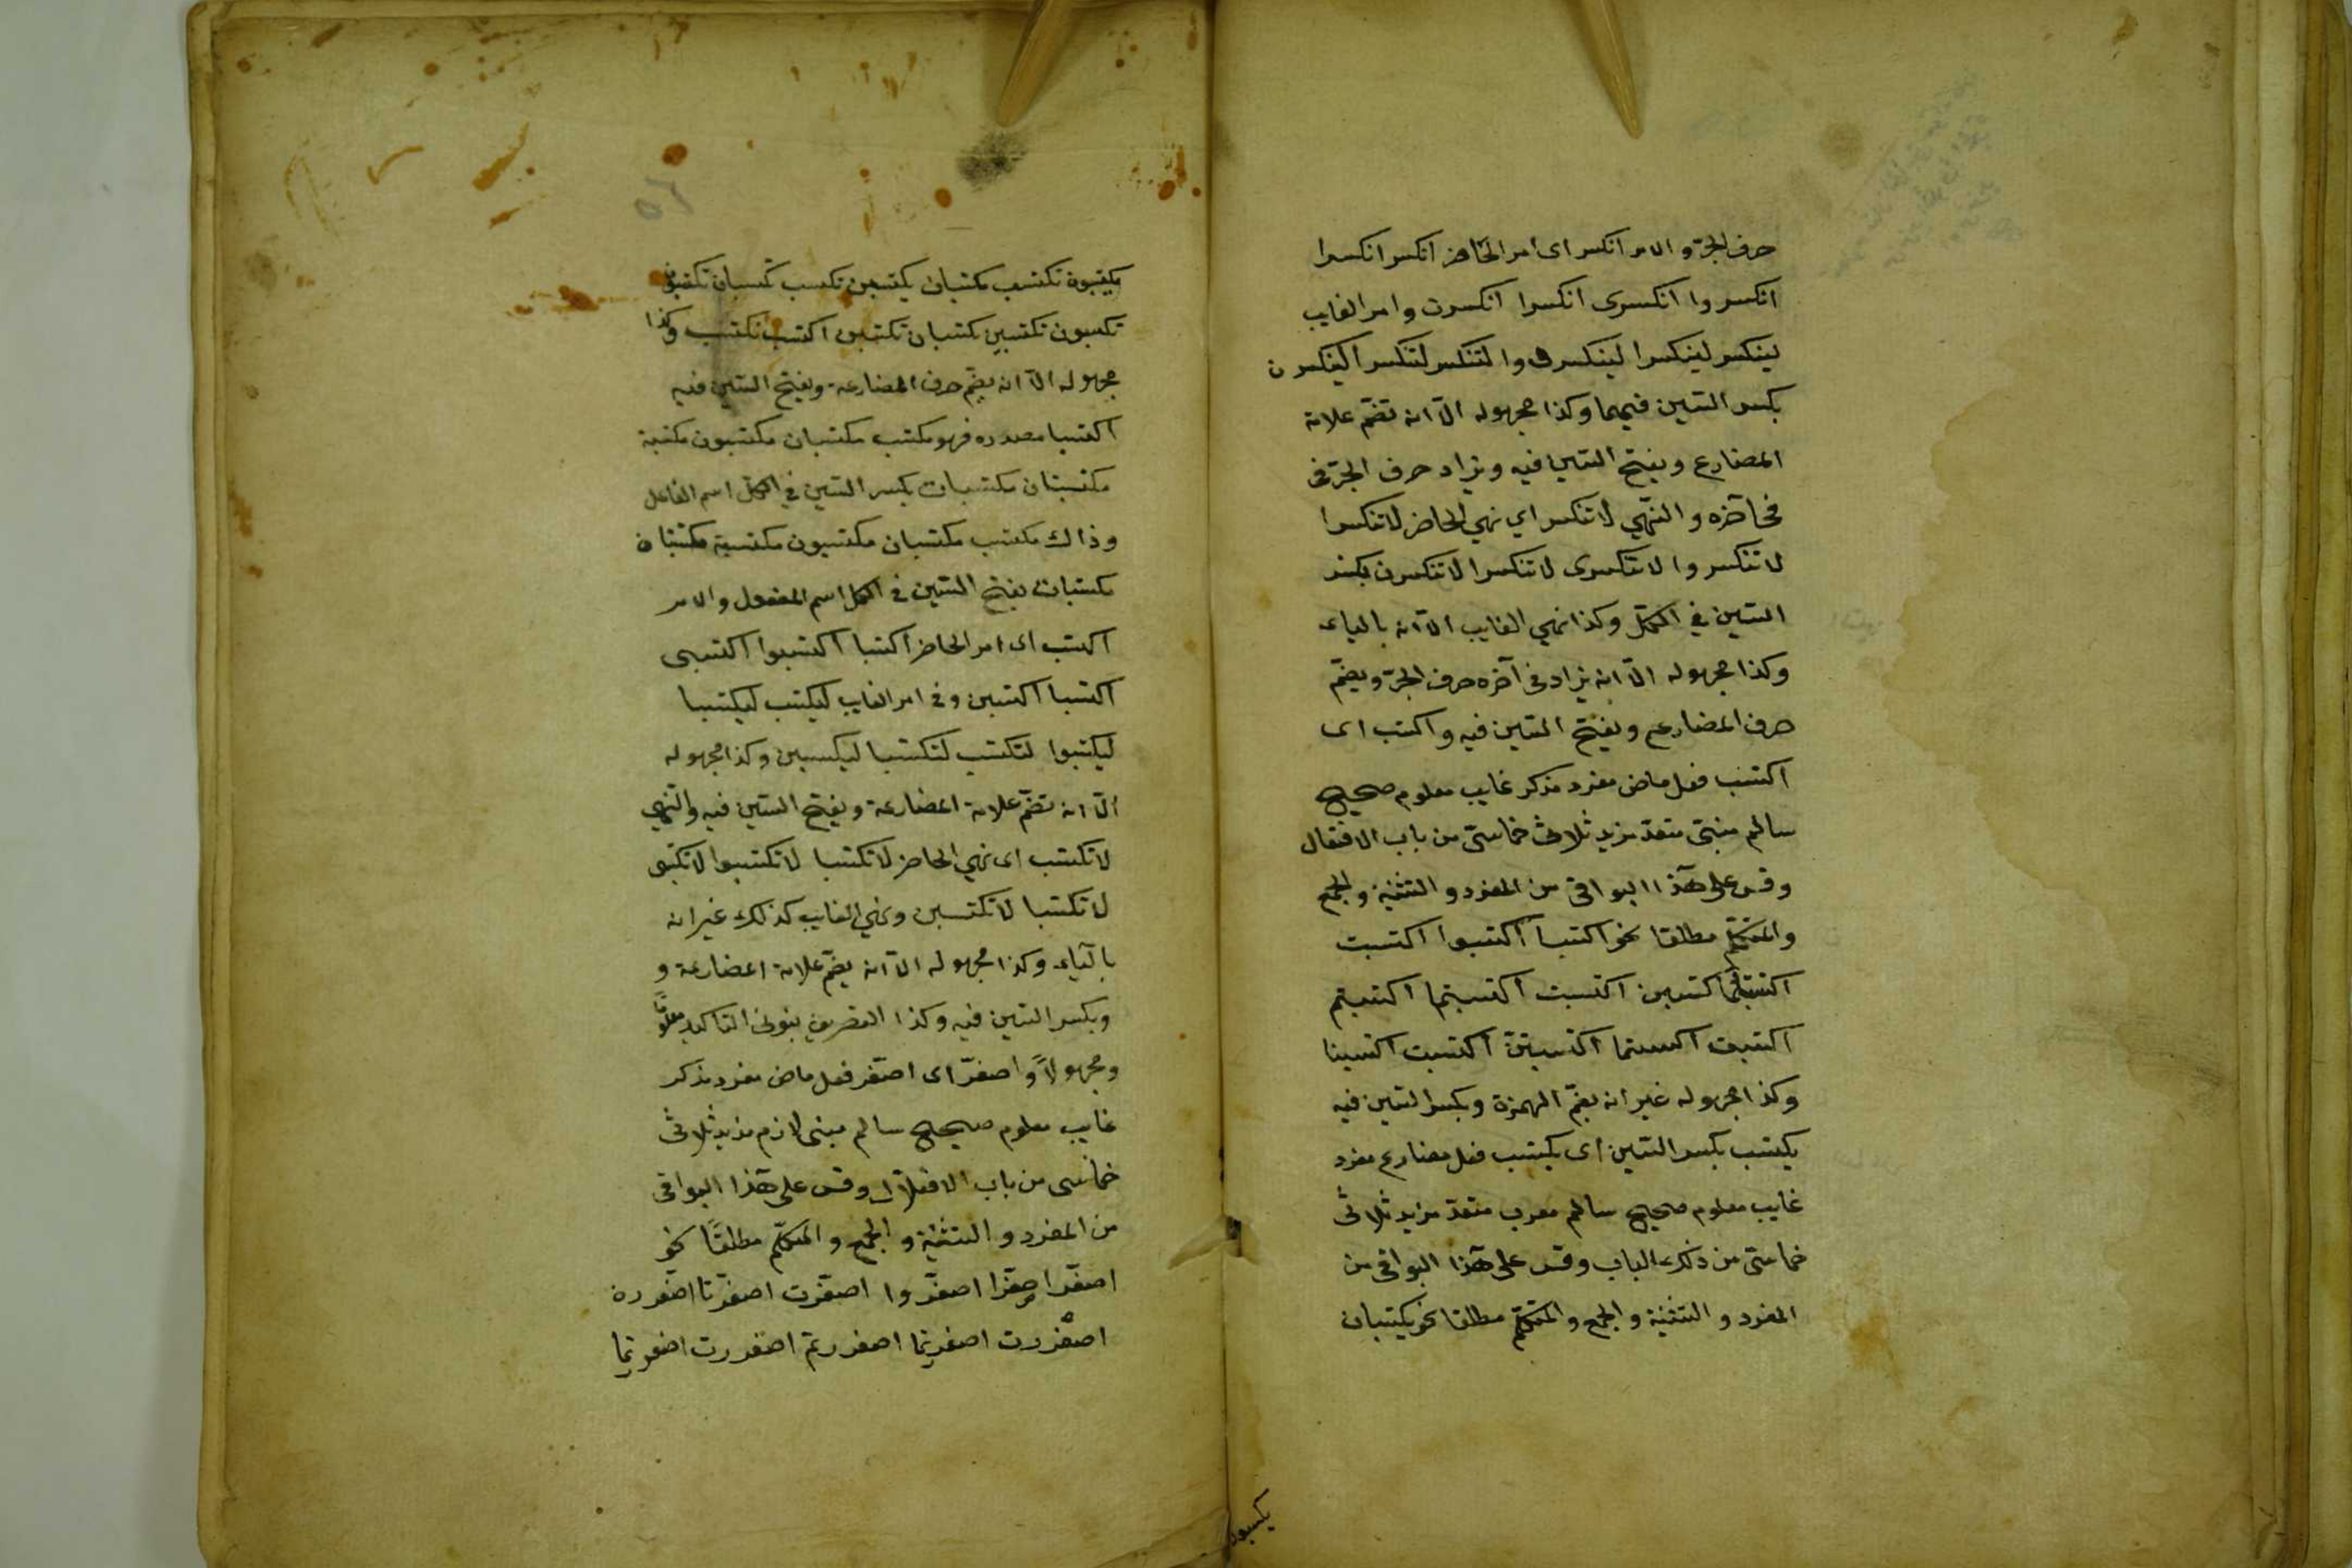 حرف الجرّ والامر انكسر اى امر الحاضر انكسر انكسرا
انكسروا انكسرى انكسرا انكسرن وامر الغايب
لينكسر لينكسرا لينكسروا لتنكسر لتنكسرا لينكسرن
بكسر السّين فيهما وكذا مجهوله الّا انه تضمّ علامة
المضارع ويفتح السّين فيه ويزاد حرف الجرّ فى
فى آخره والنّهي لا تنكسر اي نهي الحاضر لا تنكسرا
لا تنكسروا لا تنكسرى لا تنكسرا لا تنكسرن بكسر
السّين في الكلّ وكذا نهي الغايب الّا انه بالياء
وكذا مجهوله الّا انه يزاد فى آخره حرف الجرّ ويضمّ
حرف المضارع ويفتح السّين فيه واكتسب اى
اكتسب فعل ماض مفرد مذكر غايب معلوم صحيح
سالم مبنىّ متعدّ مزيد ثلاثىّ خماسىّ من باب الافتعال
وقس على هذا البواقى من المفرد والتثنية والجمع
والمتكلّم مطلقا نحو اكتسبا اكتسبوا اكتسبت
اكتسبتا اكتسبن اكتسبت اكتسبتما اكتسبتم
اكتسبت اكتسبتما اكتسبتنّ اكتسبت اكتسبنا
وكذا مجهوله غير انه بضمّ الهمزة وبكسر السّين فيه
يكتسب بكسر السّين اى يكتسب فعل مضارع مفرد
غايب معلوم صحيح سالم معرب متعدّ مزيد ثلاثى
خماسىّ من ذلك الباب وقس على هذا البواقى من
المفرد والتثنية والجمع والمتكلّم مطلقا نحو يكتسبان
يكتسبون
يكتسبون تكتسب تكتسبان يكتسبن تكتسب تكتسبان
تكتسبون تكتسبين تكتسبان تكتسبن اكتسب نكتسب وكذا
مجهوله الّا انه يضمّ حرف المضارعة ويفتح السّين فيه
اكتسابا مصدره فهو مكتسب مكتسبان مكتسبون مكتسبة
مكتسبتان مكتسبات بكسر السّين في الكلّ اسم الفاعل
وذاك مكتسب مكتسبان مكتسبون مكتسبة مكتسبتان
مكتسبات بفتح السّين فى الكل اسم المفعول والامر
اكتسب اى امر الحاضر اكتسبا اكتسبوا اكتسبى
اكتسبا اكتسبن وفى امر الغايب ليكتسب ليكتسبا
ليكتسبوا لتكتسب لتكتسبا ليكتسبن وكذا مجهوله
الّا انه تضمّ علامة المضارعة ويفتح السّين فيه والنّهي
لا تكتسب اى نهي الحاضر لا تكتسبا لا تكتسبوا لا تكتسبى
لا تكتسبا لا تكتسبن ونهي الغايب كذلك غير انه
بالياء وكذا مجهوله الّا انه يضمّ علامة المضارعة و
وبكسر السّين فيه وكذا التصريف بنونى التاكيد معلومًا
ومجهولاً واصفرّ اى اصفر فعل ماض مفرد مذكر
غايب معلوم صحيح سالم مبنى لازم مزيد ثلاثى
خماسى من باب الافعلال وقس على هذا البواقى
من المفرد والتثنية والجمع والمتكلّم مطلقًا نحو
اصفرّ اصفرّا اصفرّوا اصفرّت اصفرّتا اصفررن
اصفررت اصفررتما اصفررتم اصفررت اصفررتما